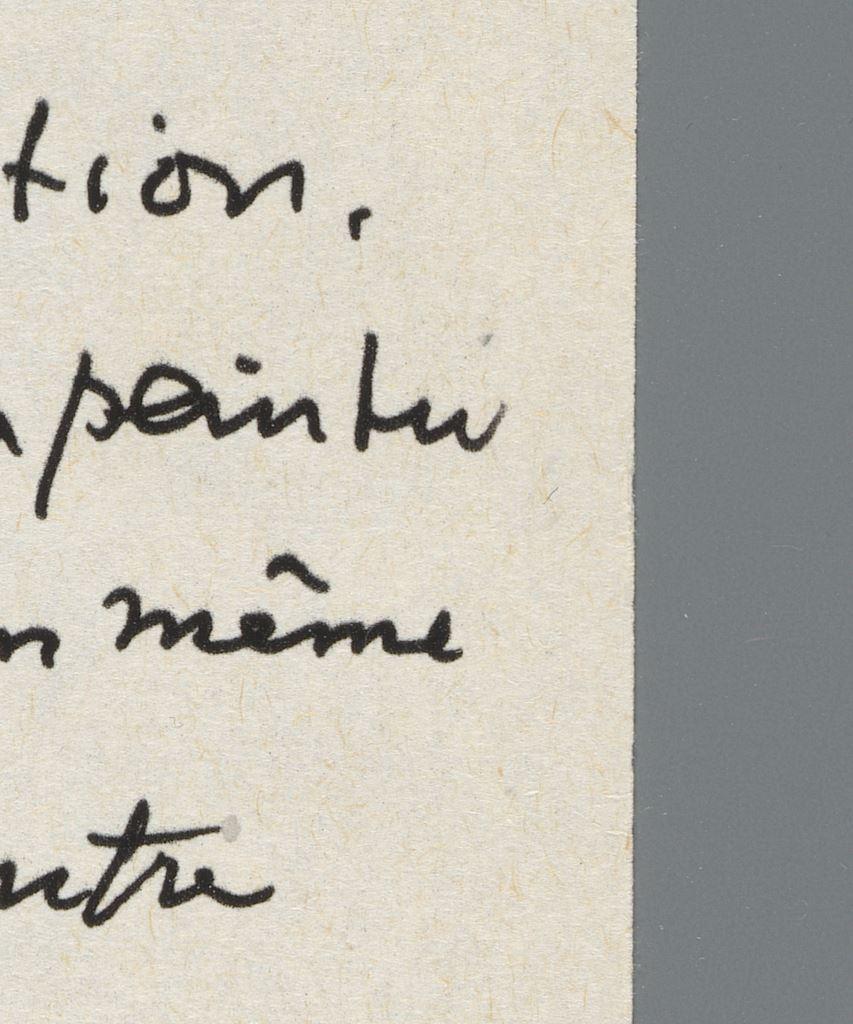 tion.
peintre
n même
ntre